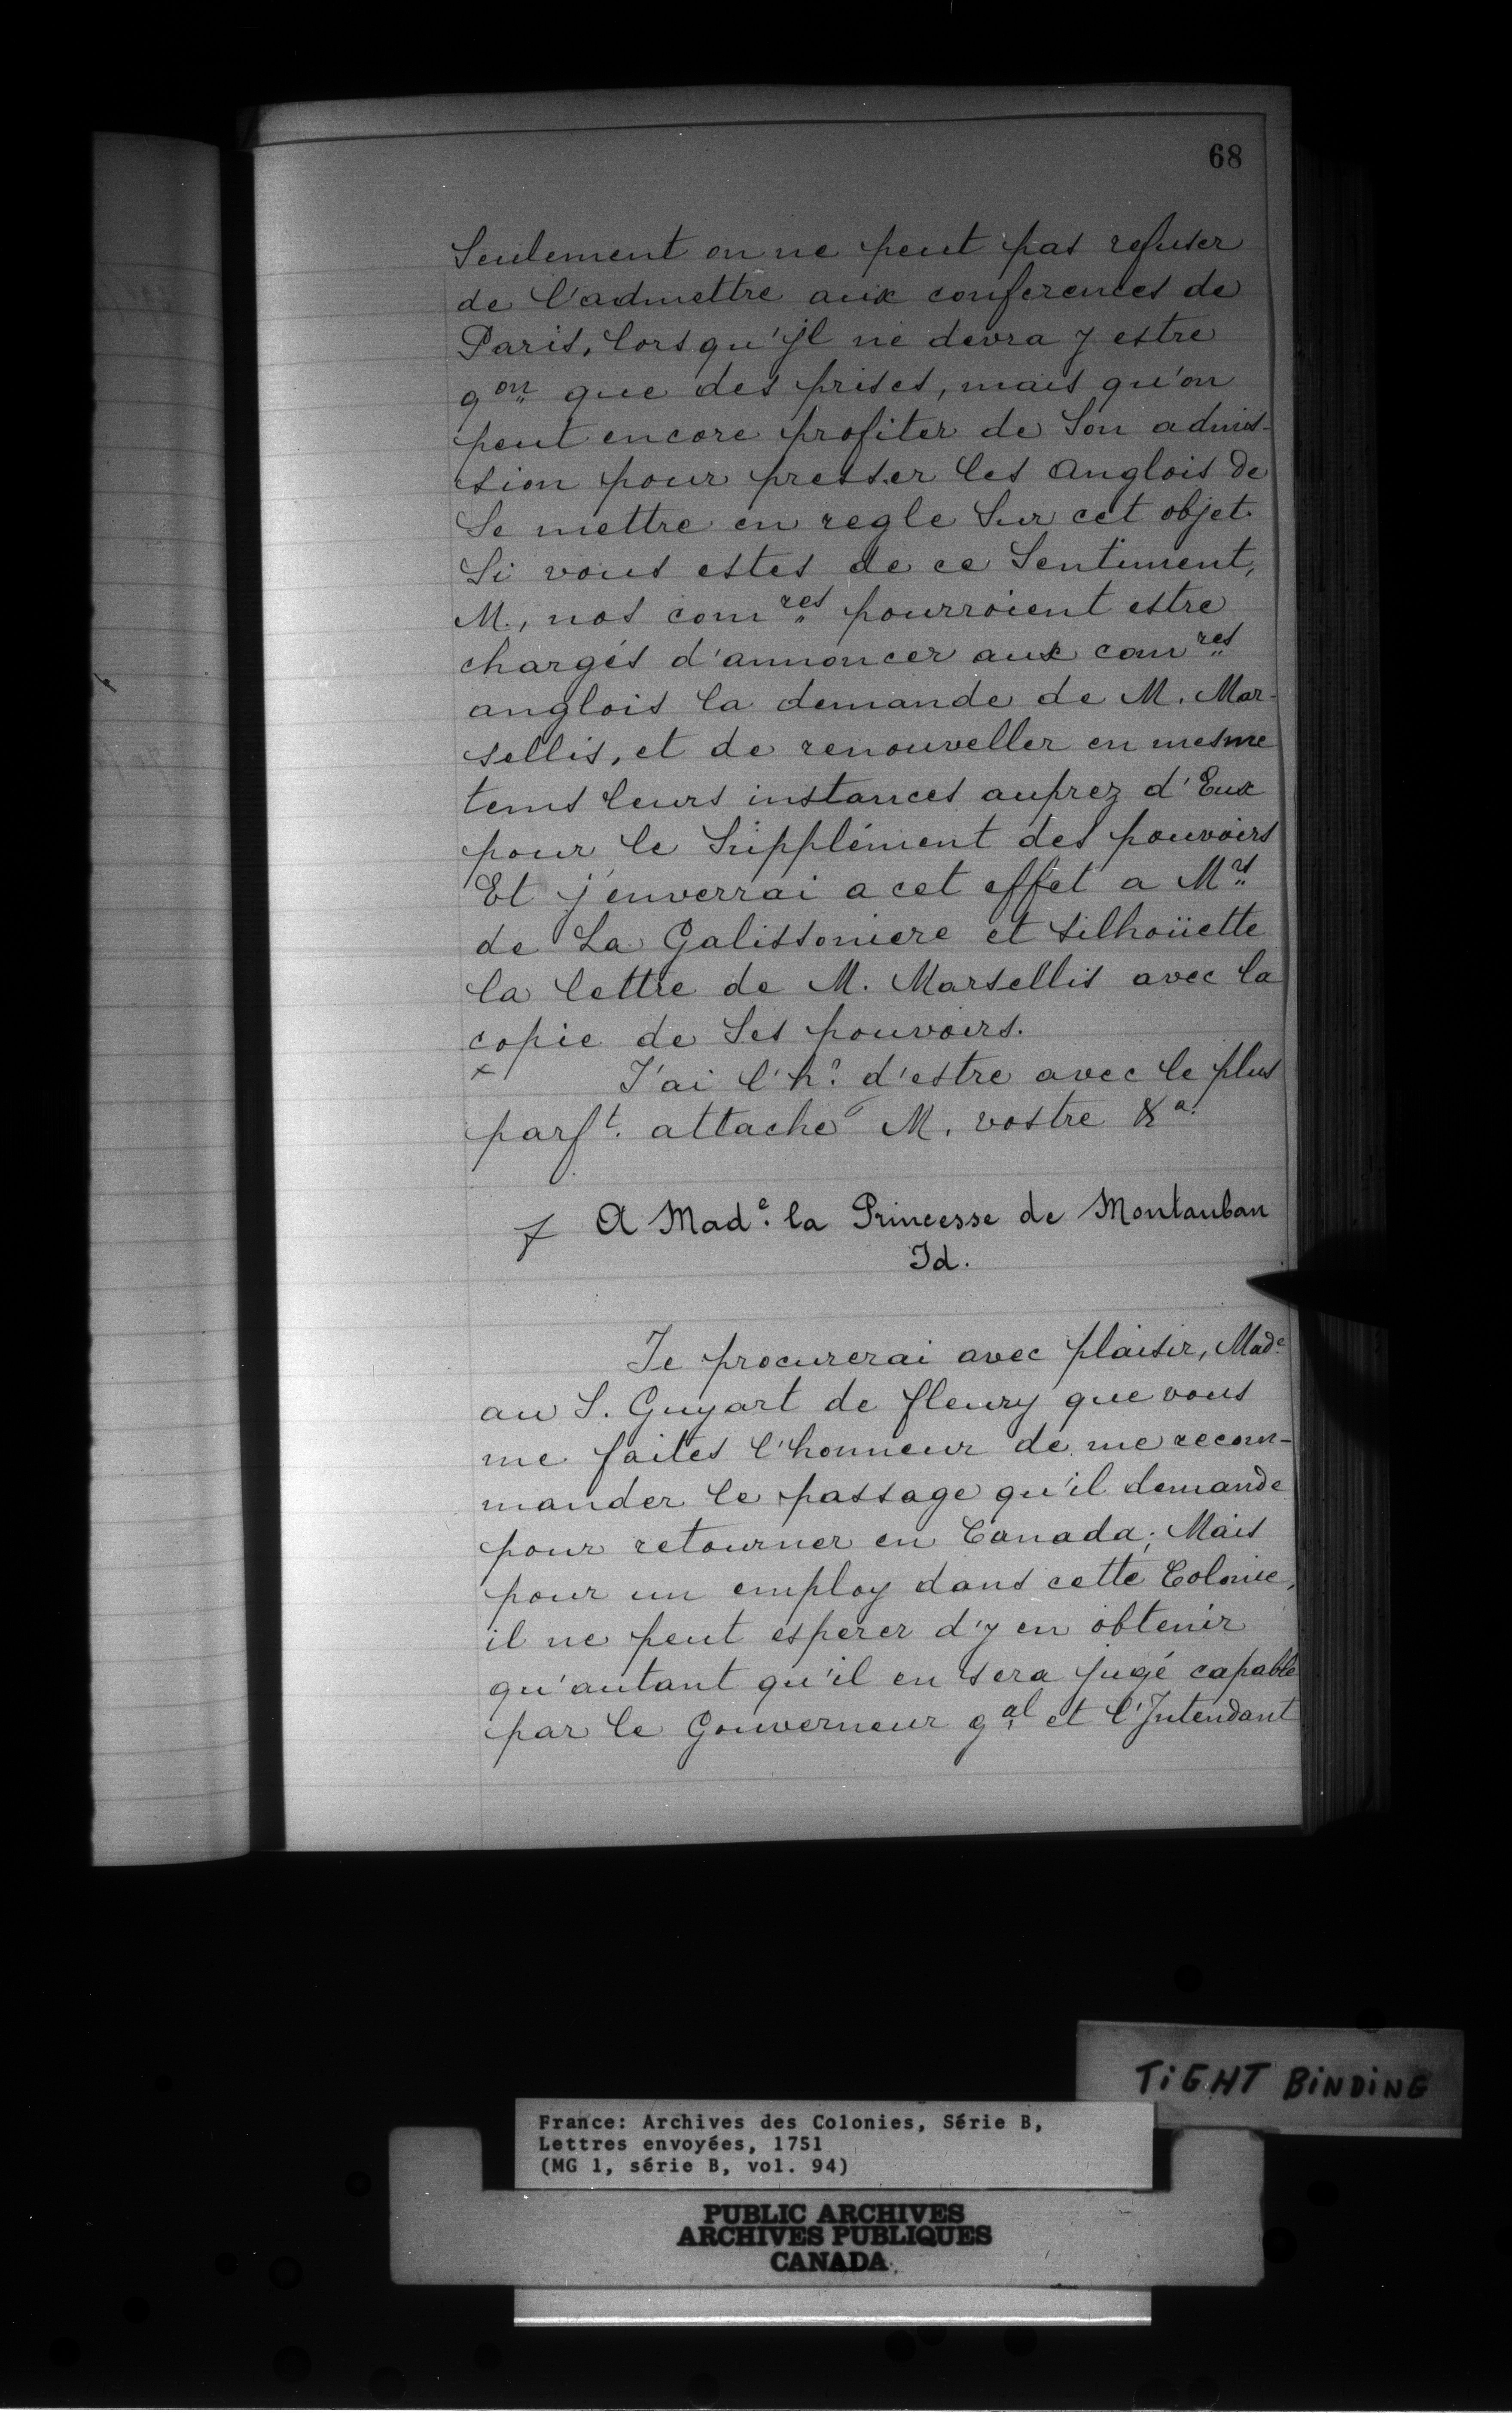 68
Seulement on ne peut pas refuser
de l'admettre aux conferences de
Paris, lorsqu'jl ne devra y estre
qon que des prises, mais qu'on
peut encore profiter de Son admis-
sion pour presser les Anglois de
Se mettre en regle Sur cet objet.
Si vous estes de ce Sentiment,
M., nos comres pourroient estre
chargés d'annoncer aux comres
anglois la demande de M. Mar-
sellis, et de renouveller en mesme
tems leurs instances auprez d'Eux
pour le Supplément des pouvoirs
Et j'enverrai a cet effet a Mrs
de La Galissoniere et Silhoüette
la lettre de M. Marsellis avec la
copie de Ses pouvoirs.
x J'ai l'h? d'estre avec le plus
parft. attache M. vostre &a.
A Made. la Princesse de Montauban
Id.
Je procurerai avec plaisir, Made
au S. Guyart de fleury que vous
me faites l'honneur de me recom-
mander le passage qu'il demande
pour retourner en Canada; Mais
pour un employ dans cette Colonie,
il ne peut esperer d'y en obtenir
qu'autant qu'il en sera jugé capable
par le Gouverneur gal et l'Intendant
TIGHT BINDING
France: Archives des Colonies, Série B,
Lettres envoyées, 1751
(MG 1, série B, vol. 94)
PUBLIC ARCHIVES
ARCHIVES PUBLIQUES
CANADA